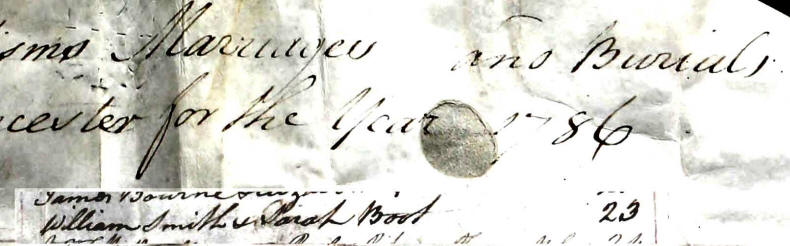 isms Marriages and Burials
cester for the Year 1786
James Bourne &
William Smith & Sarah Boot 23